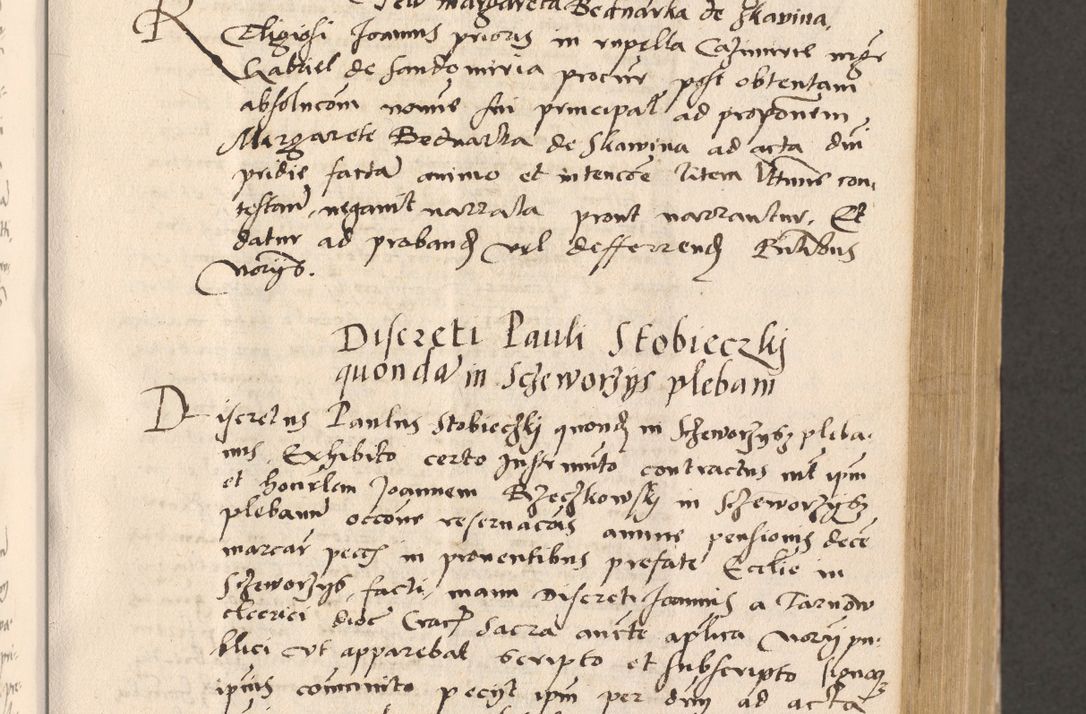 Margareta Bednarka de Skavina,
Religiosi Joannis prioris in capella Cazimirie mgr
Gabriel de Sandomiria procur post obtentam
absolucom nomine sui principal ad proponem
Margarete Bednarka de Skawina ad acta dni
pridie facta animo et intencone litem con-
testan negavit narrata prout narrantur. Et
datur ad proband vel defferrend
Noryb.
Discreti Pauli Stobieczky
quonda in Sczeworzys plebani
Discretus Paulus Stobieczkj quond in Sczeworzysz pleba-
nus Exhibito certo Instrumto contractus int ipm
et honrlem Joannem Brzeczkowsky in Sczeworzysz
plebanu occone reservacois annue pensionis dece
marcar pece in proventibus prefate Ecclie in
Sczeworzys facti, manu Discreti Joannis a Tarnow
clerici dioc Crac Sacra aucte aplica Nory pu-
blici ut apparebat scripto et subscripto signoq
ipius communito pecyt ipm per dnm ad acta